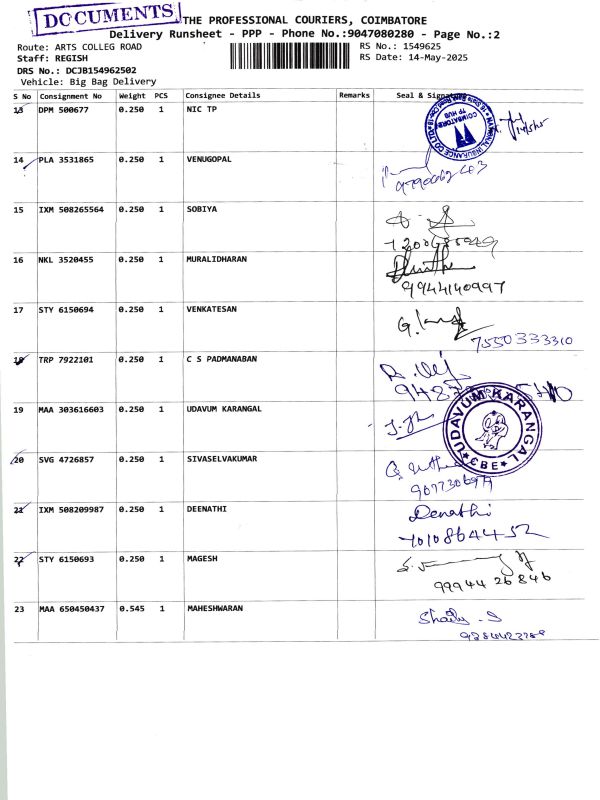 DOCUMENTS
THE PROFESSIONAL COURIERS, COIMBATORE
Delivery Runsheet - PPP - Phone No.:9047080280 - Page No.:2
Route: ARTS COLLEG ROAD
RS No.: 1549625
Staff: REGISH
RS Date: 14-May-2025
DRS No.: DCJB154962502
Vehicle: Big Bag Delivery
S No Consignment No Weight PCS Consignee Details Remarks Seal & Signature
13 DPM 500677 0.250 1 NIC TP
NATIONAL INSURANCE CO LTD
COIMBATORE
TP HUB
14 PLA 3531865 0.250 1 VENUGOPAL
15 IXM 508265564 0.250 1 SOBIYA
16 NKL 3520455 0.250 1 MURALIDHARAN
9944140997
17 STY 6150694 0.250 1 VENKATESAN
7550333310
18 TRP 7922101 0.250 1 C S PADMANABAN
19 MAA 303616603 0.250 1 UDAVUM KARANGAL
UDAVUM KARANGAL
CBE
20 SVG 4726857 0.250 1 SIVASELVAKUMAR
21 IXM 508209987 0.250 1 DEENATHI
Denathi
7010864452
22 STY 6150693 0.250 1 MAGESH
9994426846
23 MAA 650450437 0.545 1 MAHESHWARAN